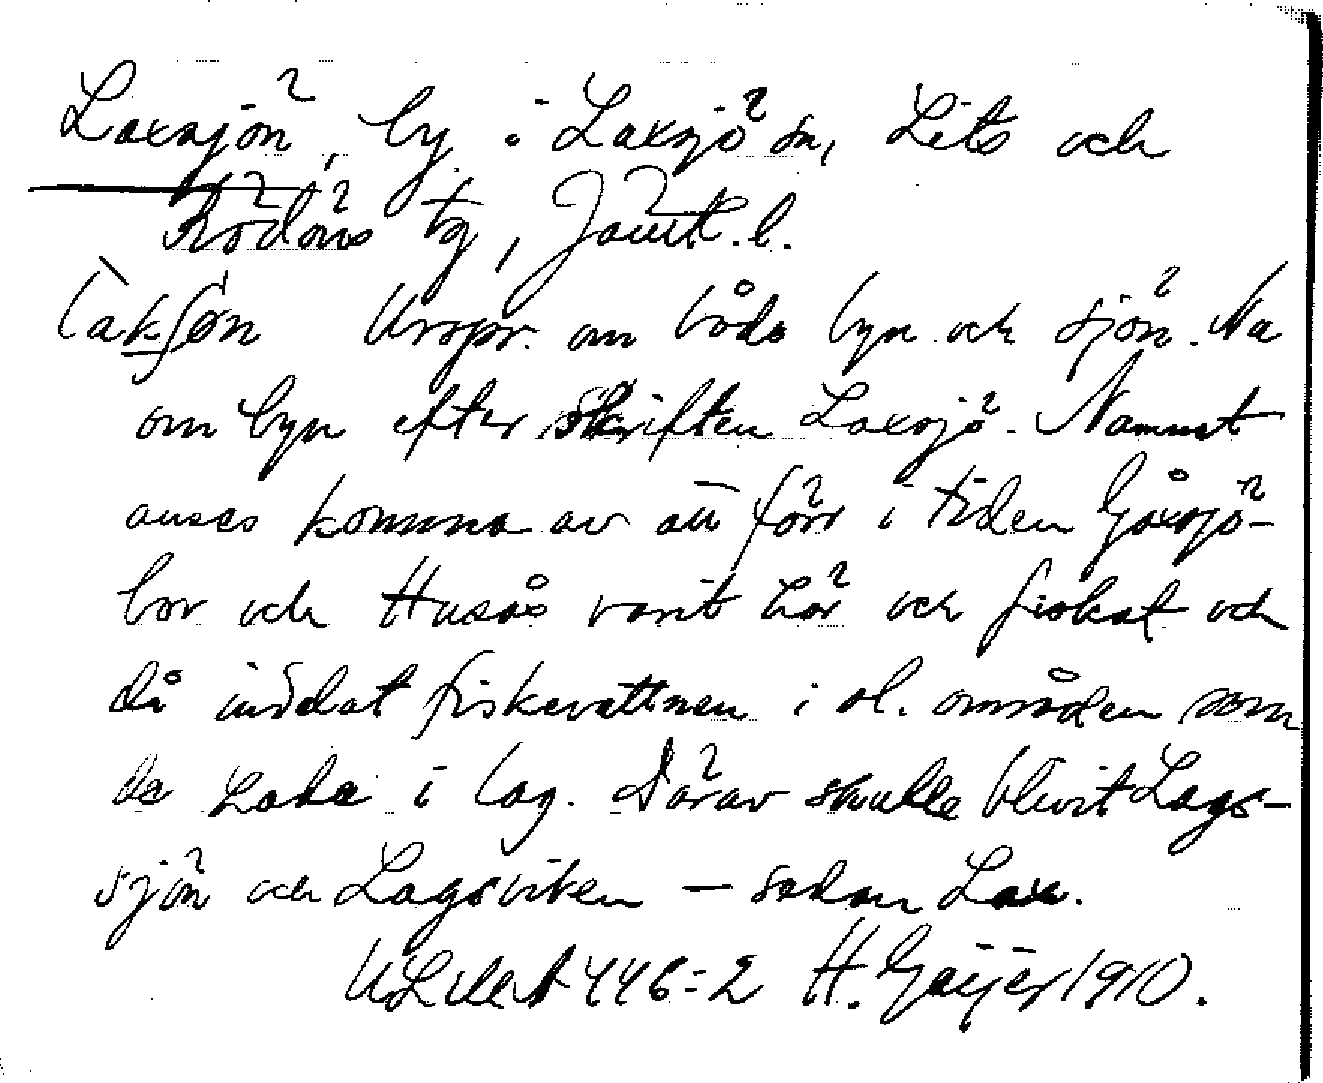 Laxsjön, by i Laxsjö sn, Lits och
Rödöns tg, Jämt. l.
làkʃøn Urspr. om både byn och sjön. Nu
om byn efter skriften Laxsjö. Namnet
anses komma av att förr i tiden Gåxsjö-
bor och Husås varit här och fiskat och
då indelat fiskevattnen i ol. områden som
de hade i lag. Därav skulle blivit Lags-
sjön och Lagsviken – sedan Lax.
446:2 H. Geijer 1910.